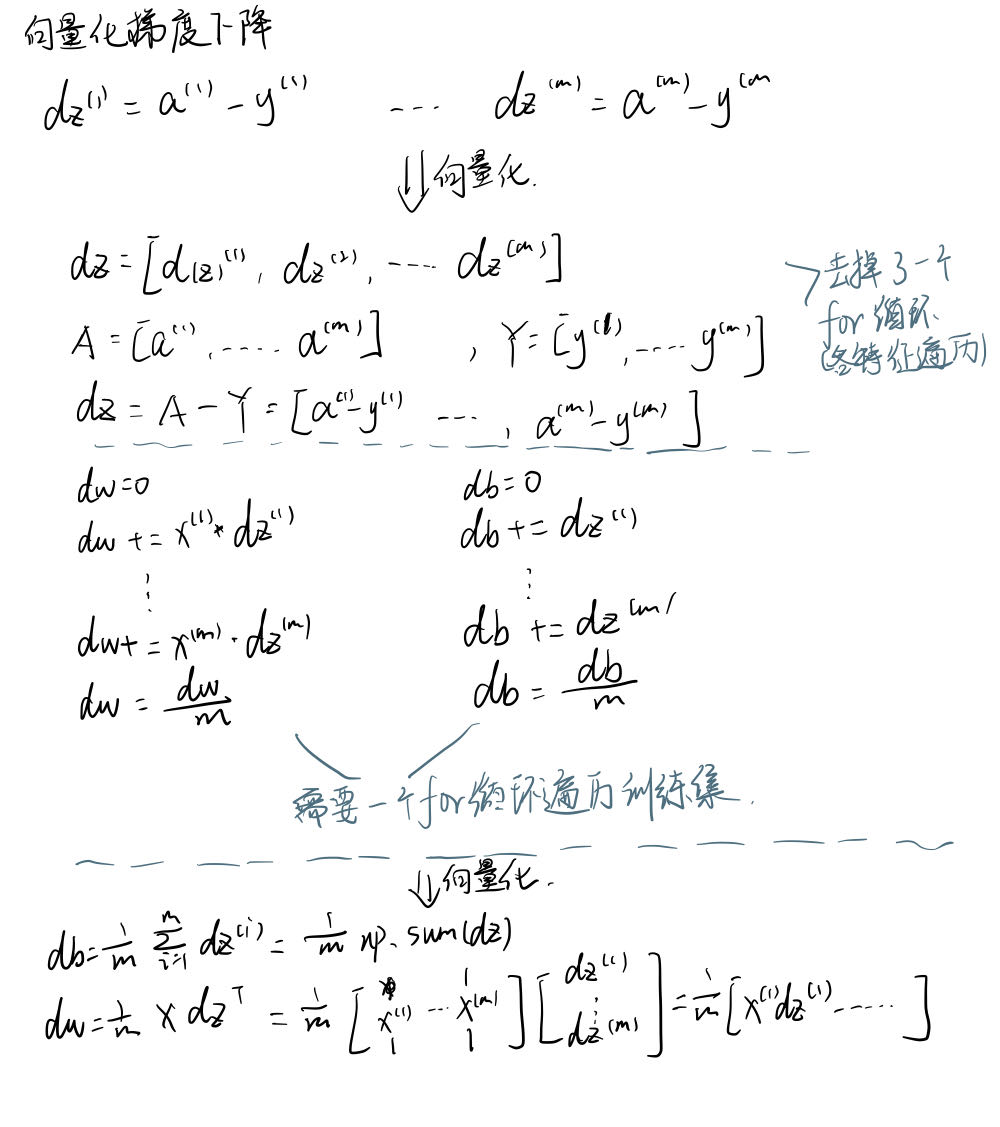 向量化梯度下降
dz⁽¹⁾ = a⁽¹⁾ - y⁽¹⁾ ---- dz⁽ᵐ⁾ = a⁽ᵐ⁾ - y⁽ᵐ
⇓ 向量化.
dz = [d(z)⁽¹⁾, dz⁽²⁾, ---- dz⁽ᵐ⁾]
A = [a⁽¹⁾, ..... a⁽ᵐ⁾] , Y = [y⁽¹⁾, ---- y⁽ᵐ⁾]
dz = A - Y = [a⁽¹⁾ - y⁽¹⁾ ---- , a⁽ᵐ⁾ - y⁽ᵐ⁾]
去掉了一个
for 循环.
特征遍历)
dw = 0 db = 0
dw += x⁽¹⁾ * dz⁽¹⁾ db += dz⁽¹⁾
⋮ ⋮
dw += x⁽ᵐ⁾ · dz⁽ᵐ⁾ db += dz⁽ᵐ⁾
dw = dw/m db = db/m
需要一个for循环遍历训练集.
⇓ 向量化.
db = 1/m Σᵢ₌₁ᵐ dz⁽ⁱ⁾ = 1/m np.sum(dz)
dw = 1/m X dzᵀ = 1/m [x⁽¹⁾ ... x⁽ᵐ⁾] [dz⁽¹⁾ ⋮ dz⁽ᵐ⁾] = 1/m [x⁽¹⁾dz⁽¹⁾ ------ ]